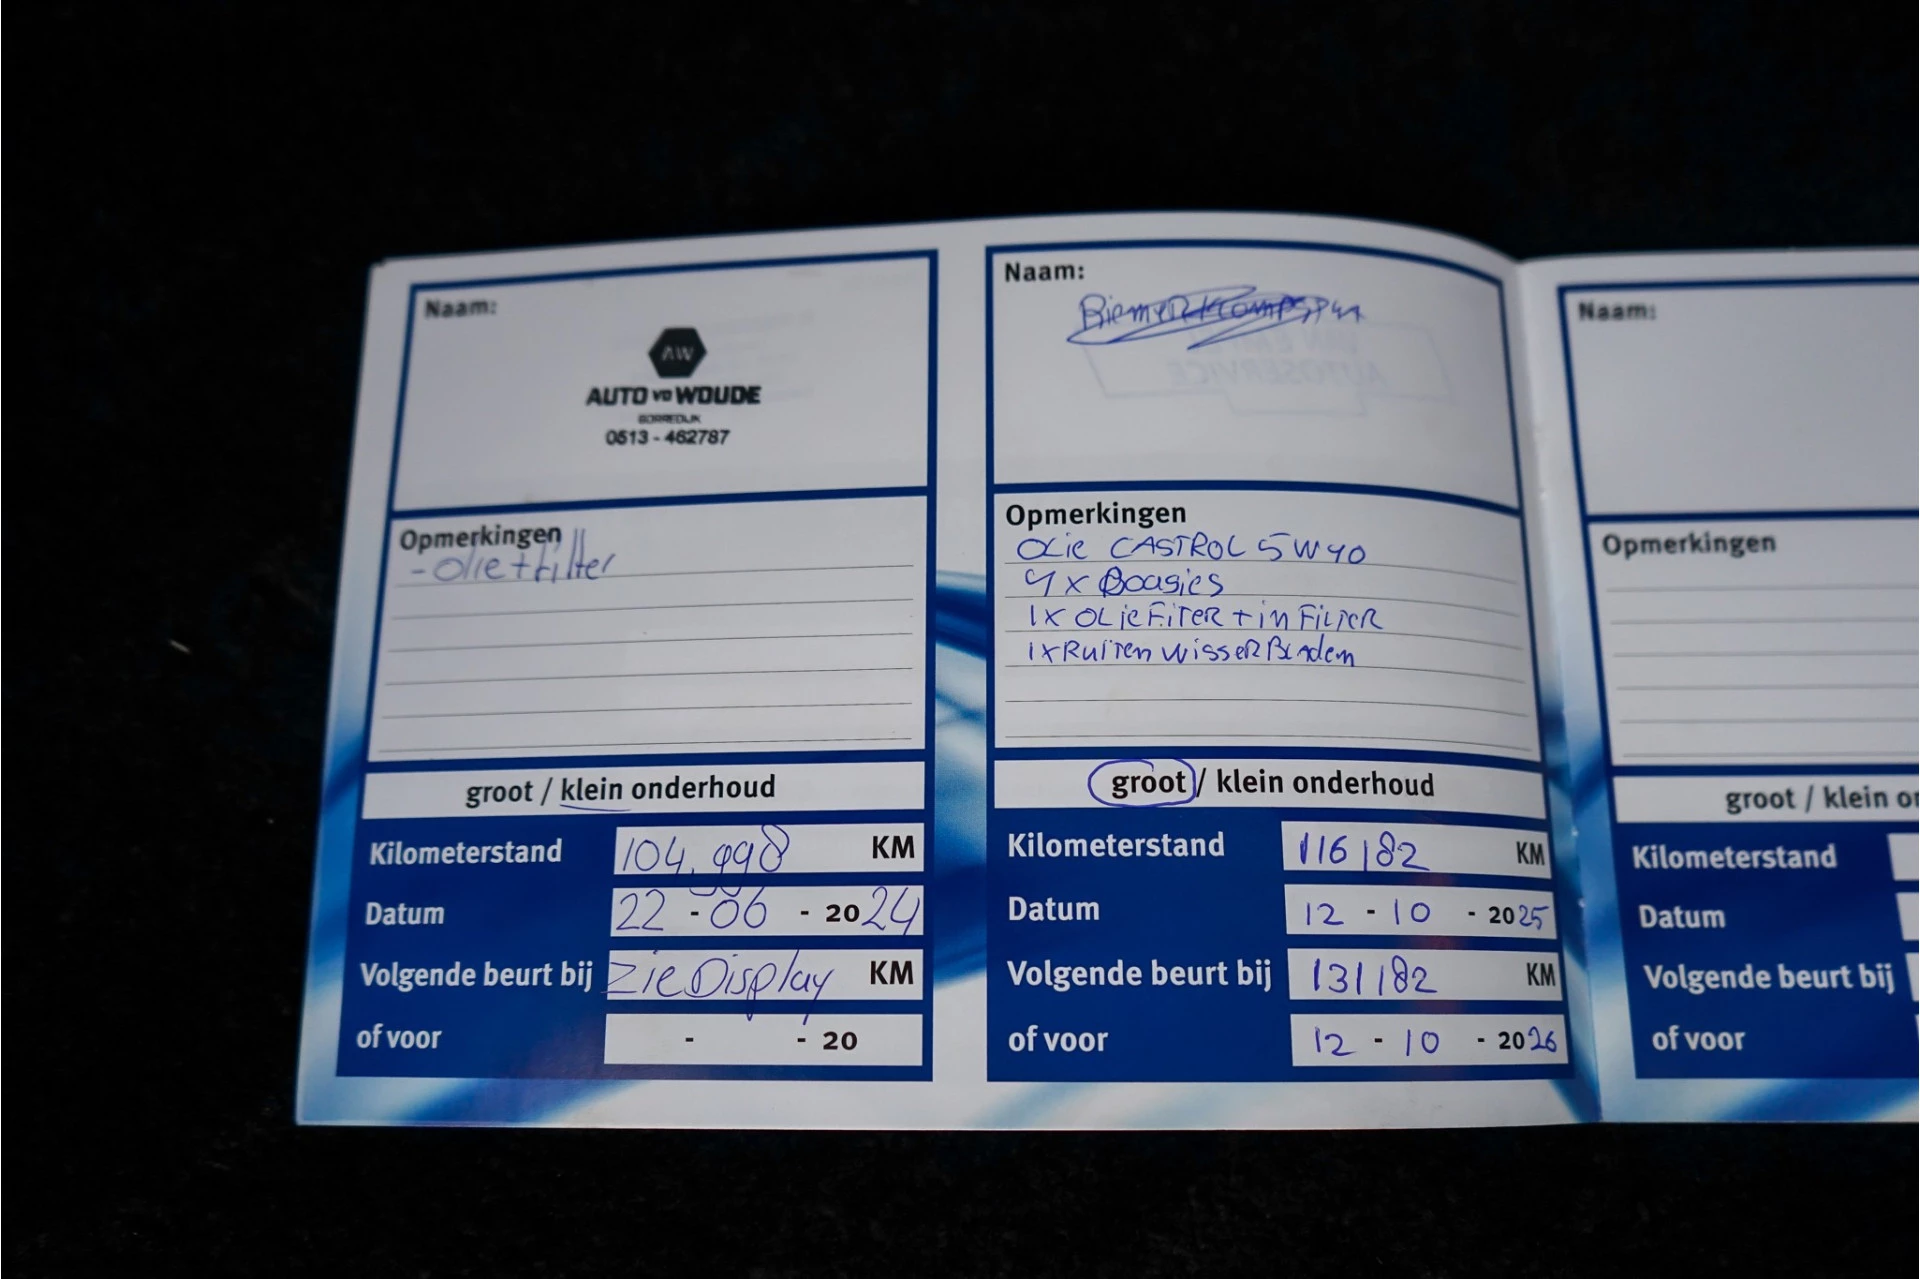 Naam:
AW
AUTO VD WOUDE
GORREDIJK
0513 - 462787
Opmerkingen
- Olie + Filter
groot / klein onderhoud
Kilometerstand 104.998 KM
Datum 22 - 06 - 2024
Volgende beurt bij Zie Display KM
of voor - - 20
Naam:
Opmerkingen
OLie CASTROL 5W40
4x Bougies
1x OLieFiTER + in FiLTER
1x RuiTen WisseR BLaden
groot / klein onderhoud
Kilometerstand 116182 KM
Datum 12 - 10 - 2025
Volgende beurt bij 131182 KM
of voor 12 - 10 - 2026
Naam:
Opmerkingen
groot / klein on
Kilometerstand
Datum
Volgende beurt bij
of voor